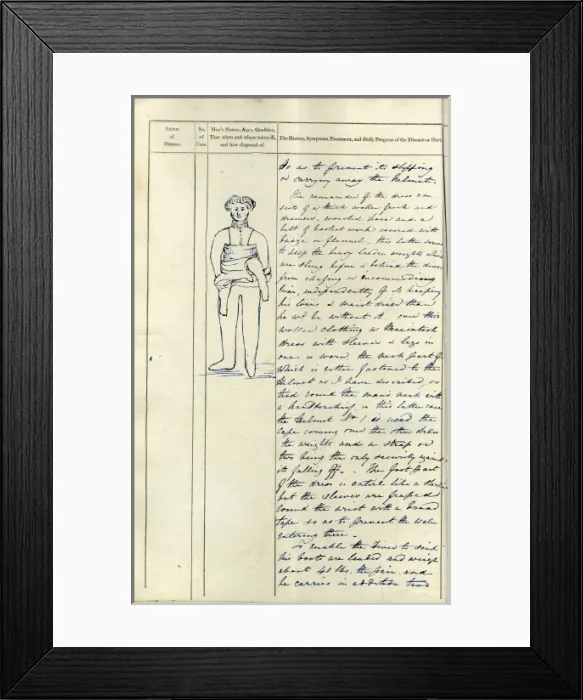 Nature
of
Disease.
No.
of
Case.
Men's Names, Ages, Qualities,
Time when and where taken ill,
and how disposed of.
The History, Symptoms, Treatment, and Daily Progress of the Disease or Hurt
So as to prevent its slipping
or carrying away the helmet.
The remainder of the dress con
sists of a thick woollen frock and
drawers, worsted hose and a
belt of basket work covered with
baize or flannel, this latter serves
to keep the heavy leaden weights which
are slung before & behind the diver
from chafing or incommoding
him, independently of its keeping
his loins & waist dried than
he wd be without it. over this
woollen clothing a Macintosh
dress with sleeves & legs in
one is worn the neck part of
which is either fastened to the
helmet as I have described, or
tied round the mans neck with
a handkerchief, in this latter case
the helmet No 1 is used the
cape coming over the other dress
the weights and a strap or
two being the only security against
its falling off. The foot part
of the dress is entire like a
but the sleeves are
round the wrist with a broad
tape so as to prevent the water
entering there.
To enable the Diver to sink
his boots are leaded and weigh
about 40 lbs. the pair and
he carries in addition two